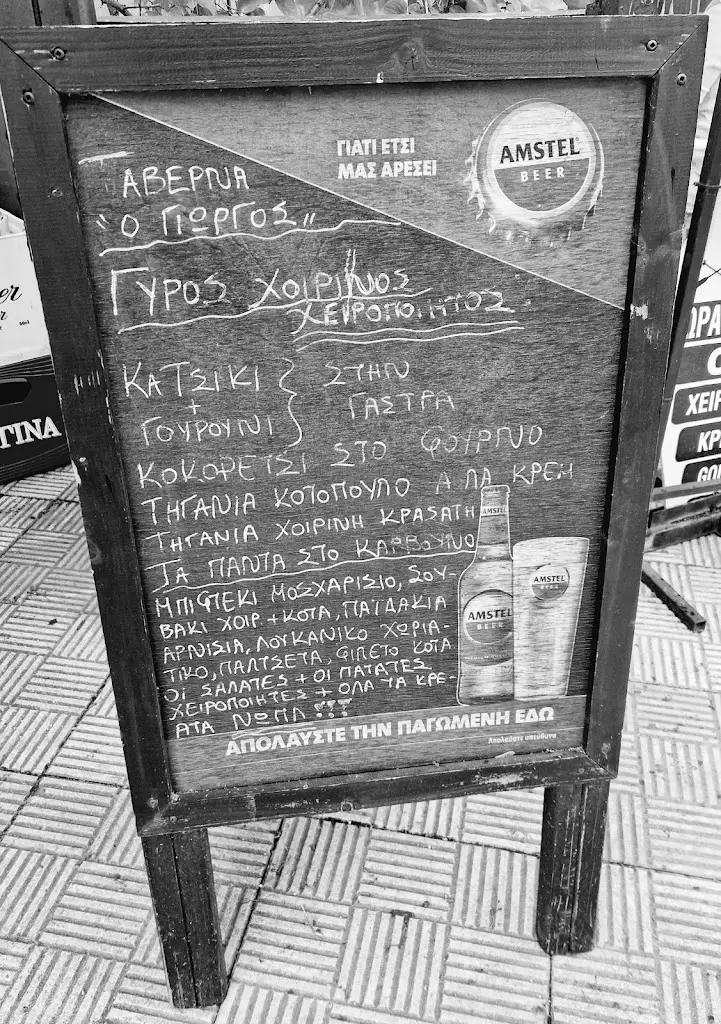 ΓΙΑΤΙ ΕΤΣΙ
ΜΑΣ ΑΡΕΣΕΙ
AMSTEL
BEER
ΤΑΒΕΡΝΑ
"Ο ΓΙΩΡΓΟΣ"
ΓΥΡΟΣ ΧΟΙΡΙΝΟΣ
ΧΕΙΡΟΠΟΙΗΤΟΣ
ΚΑΤΣΙΚΙ
+
ΓΟΥΡΟΥΝΙ
ΣΤΗΝ
ΓΑΣΤΡΑ
ΚΟΚΟΡΕΤΣΙ ΣΤΟ ΦΟΥΡΝΟ
ΤΗΓΑΝΙΑ ΚΟΤΟΠΟΥΛΟ Α ΛΑ ΚΡΕΜ
ΤΗΓΑΝΙΑ ΧΟΙΡΙΝΗ ΚΡΑSΑΤΗ
ΤΑ ΠΑΝΤΑ ΣΤΟ ΚΑΡΒΟΥΝΟ
ΜΠΙΦΤΕΚΙ ΜΟΣΧΑΡΙΣΙΟ, ΣΟΥ-
ΒΑΚΙ ΧΟΙΡ.+ΚΟΤΑ, ΠΑΙΔΑΚΙΑ
ΑΡΝΙΣΙΑ, ΛΟΥΚΑΝΙΚΟ ΧΩΡΙΑ-
ΤΙΚΟ, ΠΑΝΤΣΕΤΑ, ΦΙΛΕΤΟ ΚΟΤΑ
ΟΙ ΣΑΛΑΤΕΣ + ΟΙ ΠΑΤΑΤΕΣ
ΧΕΙΡΟΠΟΙΗΤΕΣ + ΟΛΑ ΤΑ ΚΡΕ-
ΑΤΑ ΝΩΠΑ !!!
AMSTEL
AMSTEL
BEER
AMSTEL
BEER
ΑΠΟΛΑΥΣΤΕ ΤΗΝ ΠΑΓΩΜΕΝΗ ΕΔΩ
Απολαύστε υπεύθυνα
TINA
ΩΡΑ
ΧΕΙΡ
ΚΡ